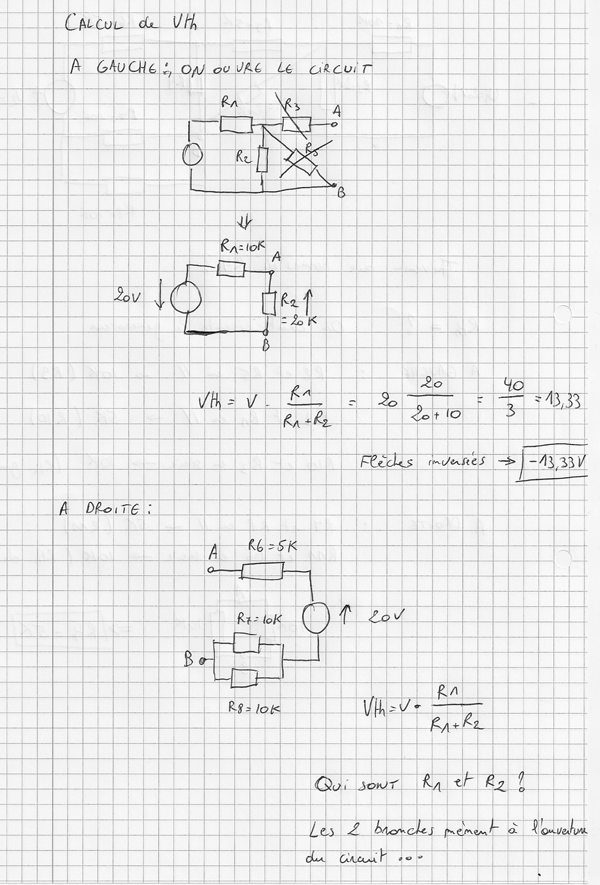 CALCUL de Vth
A GAUCHE :, ON OUVRE LE CIRCUIT
R1
R3
A
R2
R5
B
R1=10K
A
20V
R2
= 20K
B
Vth = V . R1 / R1+R2 = 20 20 / 20+10 = 40 / 3 = 13,33
Flèches inversées → -13,33V
A DROITE :
A
R6=5K
R7=10K
20V
B
R8=10K
Vth = V • R1 / R1+R2
Qui sont R1 et R2 ?
Les 2 branches mènent à l'ouverture
du circuit ...